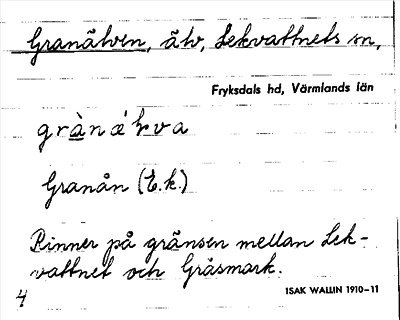 Granälven, älv, Lekvattnets sn,
Fryksdals hd, Värmlands län
Granån (E.k.)
Rinner på gränsen mellan Lek-
vattnet och Gräsmark.
4
ISAK WALLIN 1910–11